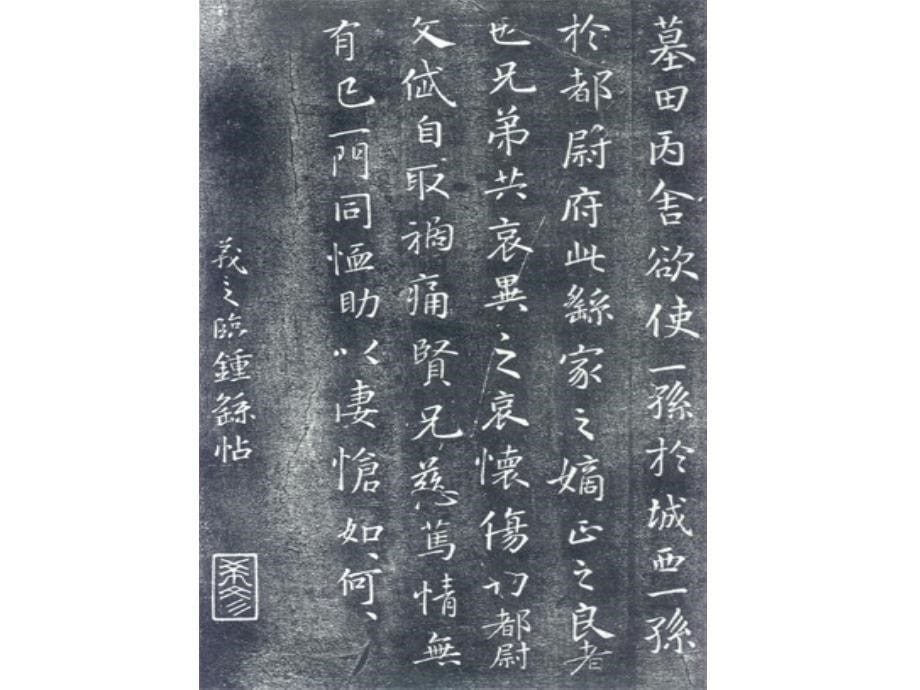 墓田丙舍欲使一孫於城西一孫
於都尉府此繇家之嫡正之良者
也兄弟共哀異之哀懷傷切都尉
文岱自取禍痛賢兄慈篤情無
有已一門同恤助以凄愴如、何、
羲之臨鍾繇帖